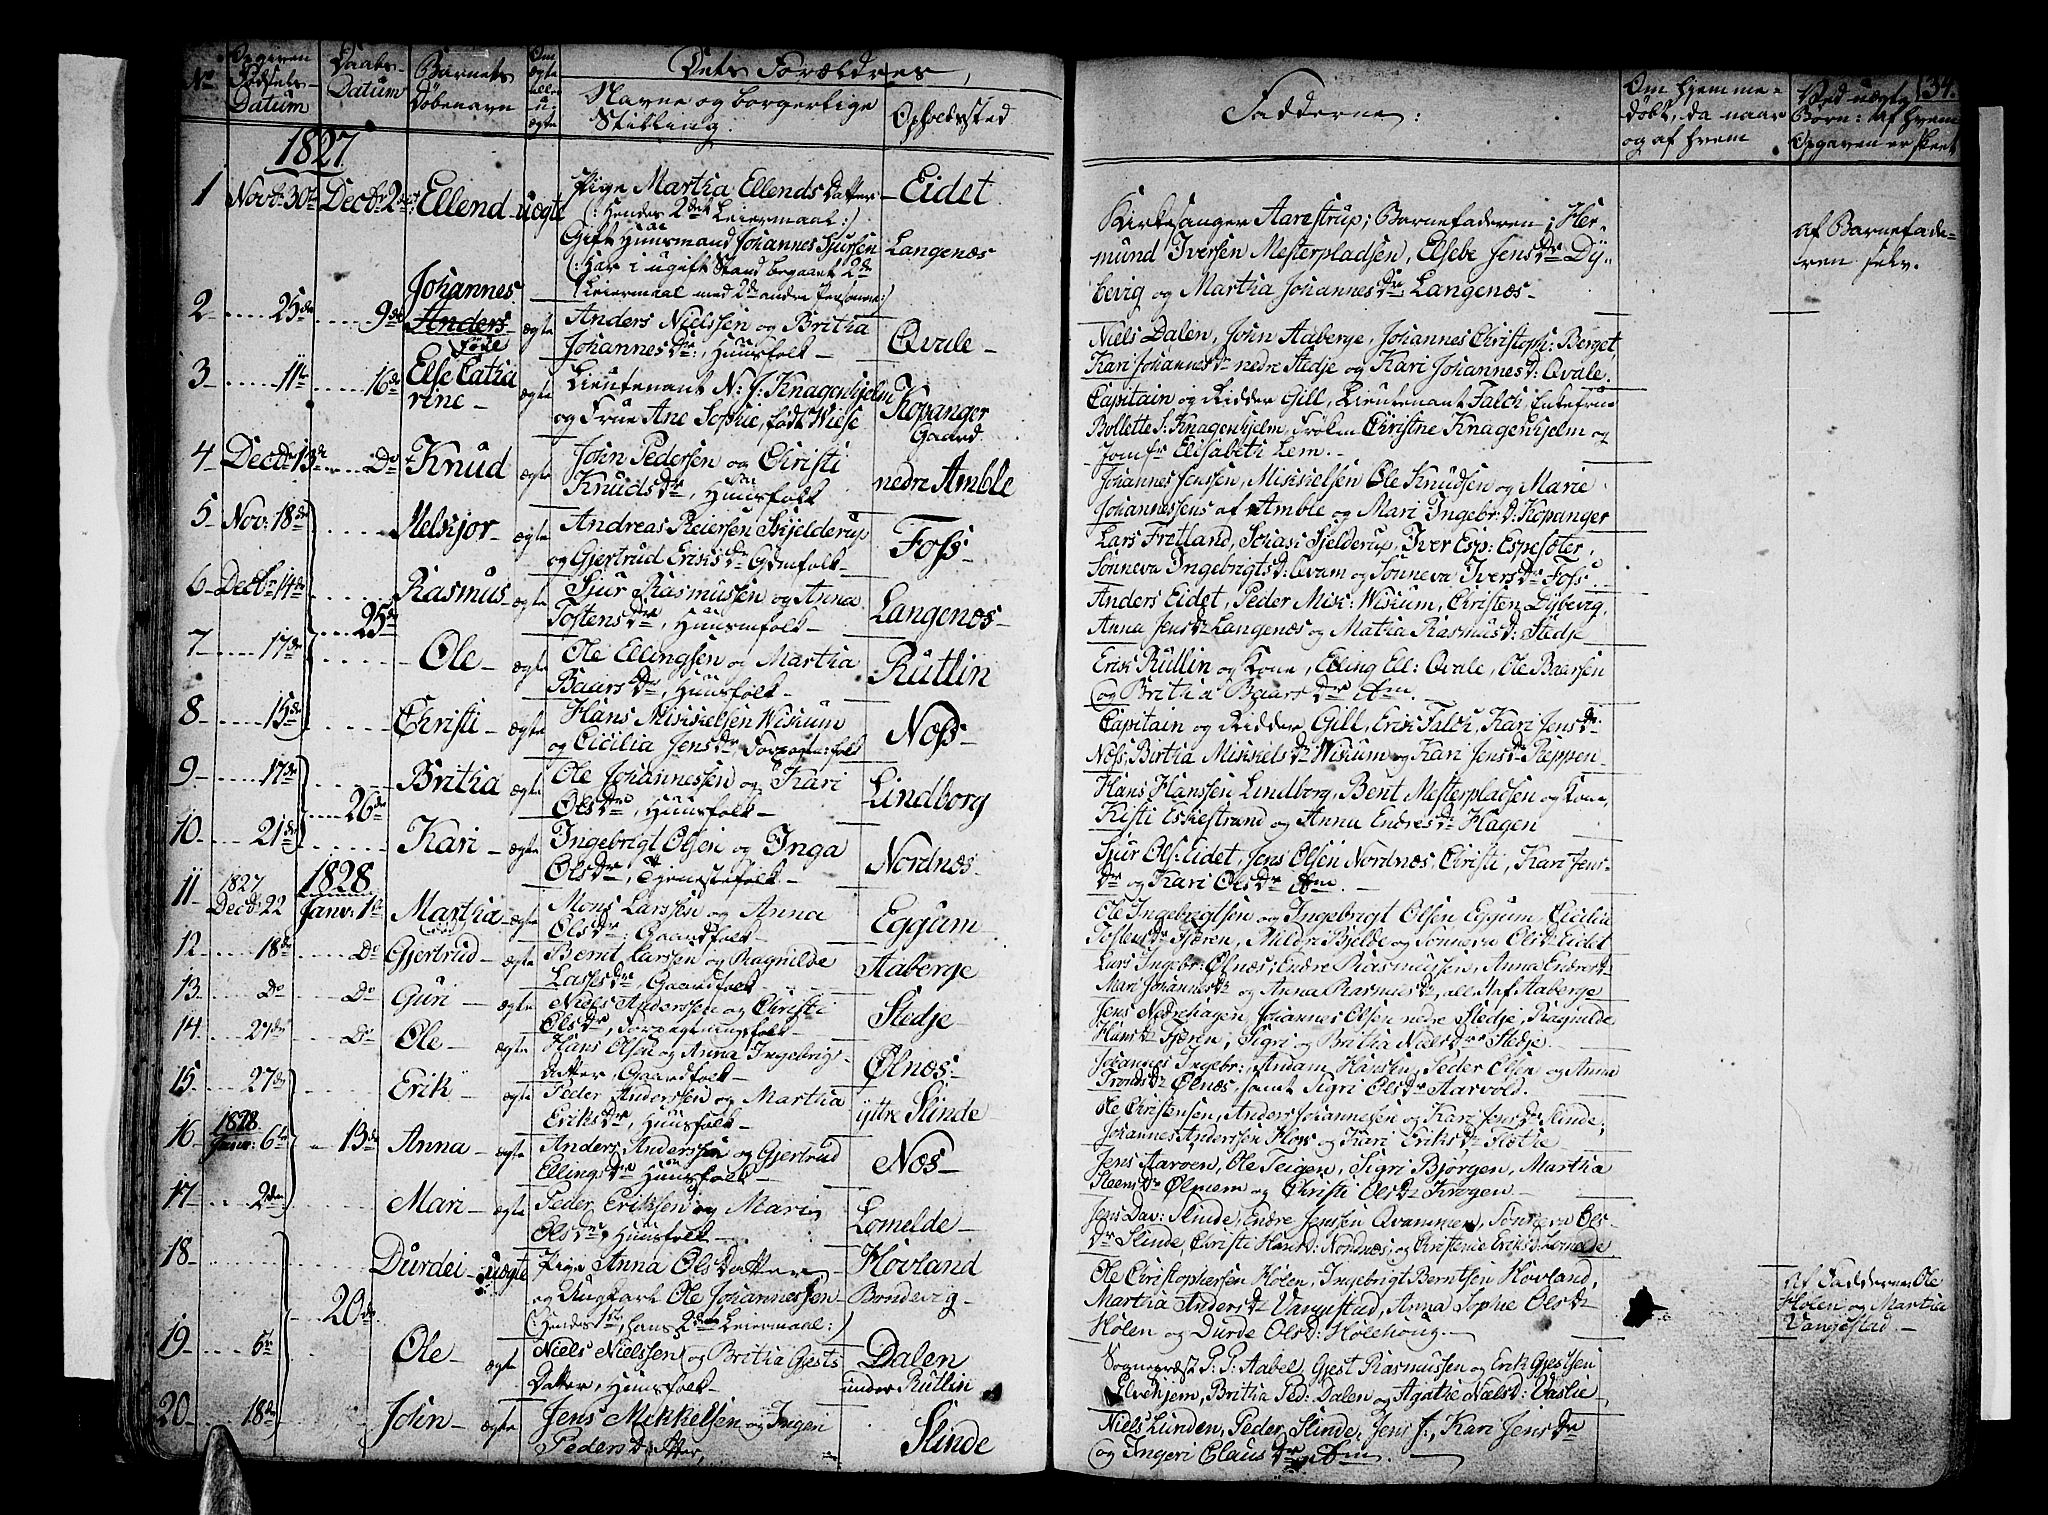 134.
No
Opgiven Fødsels Datum
Daabs-Datum
Barnets Døbenavn
Om ægte eller uægte
Dets Forældres,
Navne og borgerlige Stilling.
Opholdssted
Fadderne:
Om hjemmedøbt, da naar og af hvem
Ved uægte Børn: af hvem Opgaven er skeet
1827
1 Novbr 30te Decbr 2den Ellend uægte Pige Martha Ellends Datter Eidet
(: Hendes 2det Leiermaal:)
Gift Huusmand Johannes Sjursen Langenæs
(: Har i ugift Stand begaaet 2de
Leiermaal med 2de andre Personer:)
Kirkesanger Aarestrup; Barnefaderen; Her-
mund Iversen Mesterpladsen, Elsebe Jensdr Dy-
bevig og Martha Johannesdr Langenæs
af Barnefade-
ren selv.
2 25de 9de Johannes
Anders
ægte Anders Nielssen og Britha
Johannesdr, Huusfolk Qvale
Niels Dalen, John Aaberge, Johannes Christoph: Berget,
Kari Johannesdr nedre Stedje og Kari Johannesd: Qvale.
3 11te 16de Else Catha
rine ægte Lieutenant N: J: Knagenhjelm Kopanger
og Frue Ane Sophie, født Wiese Gaard
Capitain og Ridder Gill, Lieutenant Falch, Enkefrue
Bollette S: Knagenhjelm, Frøken Christne Knagenhjelm og
Jomfr Elisabeth Lem.
4 Decbr 13de Do Knud ægte John Pedersen og Christi
Knudsdr, Huusfolk nedre Amble
Johannes Jenssen, Mikkelsen Ole Knudsen og Marie
Johannessens af Amble og Mari Ingebr: D: Kopanger
5 Nov: 18de Melkjor ægte Andreas Reiersen Skjelderup
og Gjertrud Eriksdr Gdmfolk Foss
Lars Fretland, Skjelderup, Iver Esp: Espesæter,
Sønneva Ingebrigtsd: Qvam og Sønneva Iversdr Foss
6 Decbr 14de Rasmus ægte Sjur Rasmussen og Anna
25de
Tostensdr, Huusmfolk Langenæs
Anders Eidet, Peder Mik: Wikum, Christen Dybevig,
Anna Jensdr Langenæs og Matha Rasmusd: Stedje
7 17de Ole ægte Ole Ellingsen og Martha
Baarsdr, Huusfolk Rutlin
Erik Rutlin og Kone, Elling Ell: Qvale, Ole Baarsen
og Britha Baarsdr ibm.
8 15de Christi ægte Hans Mikkelsen Wikum
og Cicilia Jensdr Forpagterfolk Næss
Capitain og Ridder Gill, Erik Falch, Kari Jensdr
Næss, Birtha Mikkelsdr Wikum og Kari Jensdr Reppen
9 17de Britha ægte Ole Johannessen og Kari
26de
Olsdr, Huusfolk Lindborg
Hans Hanssen Lindborg, Bent Mesterpladsen og Kone,
Kisti Eskestrand og Anna Endresdr Hagen
10 21de Kari ægte Ingebrigt Olsen og Inga
Olsdr, Tjenestefolk Nordnæs
Sjur Ols: Eidet, Jens Olsen Nordnæs, Christi, Kari Jens-
dr og Kari Olsdr ibm.
1828
11 1827
Decb: 22 Janv: 1te Martha ægte Mons Larssen og Anna
Olsdr Gaardfolk Eggum
Ole Ingebrigtsen og Ingebrigt Olsen Eggum, Cicilia
Tostensdr Fjæren, Mildri Bjelde og Sønneva Olsdr Eidet
12 18de Do Gjertrud ægte Bernt Larssen og Ragnilde
Lassesdr, Gaardfolk Aaberge
Lars Ingebr: Ølnæs, Endre Rasmussen, Anna Endresdr
Mari Johannesdr og Anna Rasmusdr, alle af Aaberge
13 Do Do Guri ægte Niels Anderssen og Christi
Olsdr, Forpagtningsfolk Stedje
Jens Nedrehagen, Johannes Olsen nedre Stedje, Ragnilde
Hansdr Fjæren, Sigri og Britha Nielsdr Stedje.
14 27de Do Ole ægte Hans Olsen og Anna Ingebrigs-
datter, Gaardfolk Ølnæs
Johannes Ingebr:, Andam Hansen, Peder Olsen og Anna
Trondsdr Ølnæs, samt Sigri Olsdr Aarvold.
15 27de Erik ægte Peder Anderssen og Martha
Eriksdr, Huusfolk yttre Slinde
Ole Christensen, Anders Johannessen og Kari Jensdr Slinde,
Johannes Anderssen og Kari Eriksdr
16 1828
Janv: 6te 13de Anna ægte Anders Anderssen og Gjertrud
Ellingsdr Huusfolk Næs
Jens Aarøen, Ole Teigen, Sigri Bjørgen, Martha
Steensdr Ølmem og Christi Olsdr Krogen
17 2den Mari ægte Peder Eriksen og Mari
Olsdr, Huusfolk Lomelde
Jens Dav: Slinde, Endre Jenssen Qvammen, Sønneva Ols-
dr Slinde, Christi Hansd: Nordnæs, og Christense Eriksd: Lomelde
18 Durdei uægte Pige Anna Olsdatter Hovland
og Ungkarl Ole Johannessen Bondevig
20de (: Hendes 1ste, hans 2det Leiermaal:)
Ole Christophersen Hølen, Ingebrigt Berntsen Hovland,
Martha Andersdr Vangestad, Anna Sophie Olsdr
Hølen og Durde Olsd: Hølehoug.
Af Fadderne Ole
Hølen og Martha
Vangestad.
19 6te Ole ægte Niels Nielssen og Britha Gjests Dalen
Datter, Huusfolk under Rutlin
Sognepræst P. P. Aabel, Gjest Rasmussen og Erik Gjestsen
Elvehjem, Britha Ped: Dalen og Agathe Nielsd:
20 18de John ægte Jens Mikkelsen og Ingeri
Pedersdatter, Slinde
Niels Lunden, Peder Slinde, Jens J:, Kari Jensdr
og Ingeri Clausdr ibm.